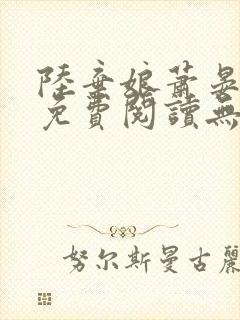 陸棄娘蕭晏
免費閱讀無
努尔斯曼古麗